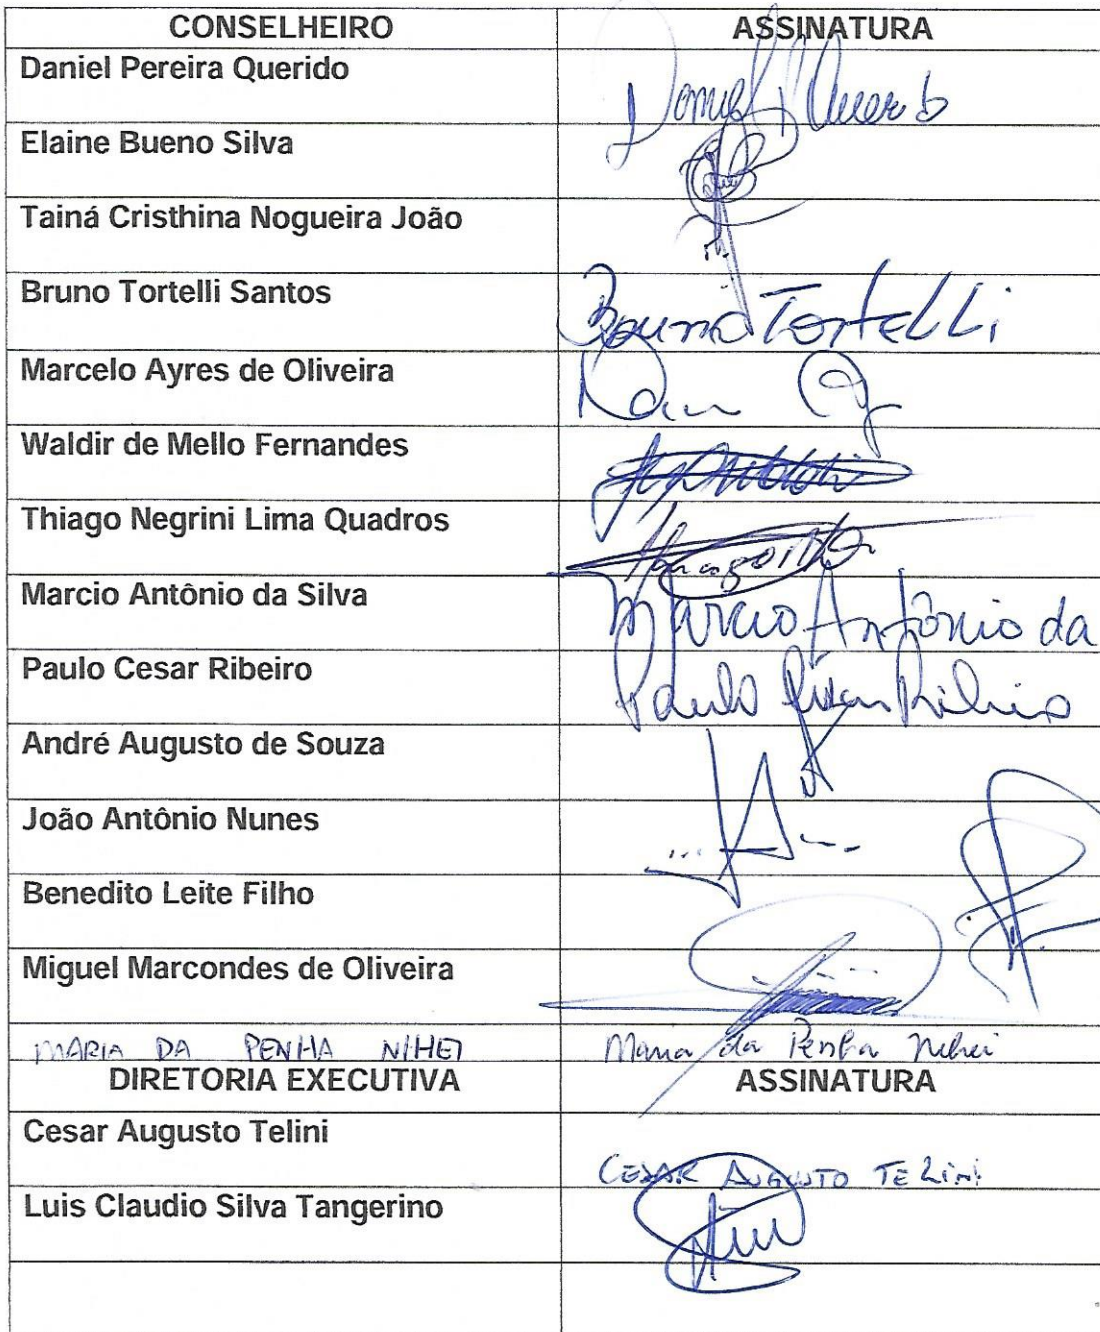 CONSELHEIRO ASSINATURA
Daniel Pereira Querido
Elaine Bueno Silva
Tainá Cristhina Nogueira João
Bruno Tortelli Santos Bruno Tortelli
Marcelo Ayres de Oliveira
Waldir de Mello Fernandes
Thiago Negrini Lima Quadros
Marcio Antônio da Silva Marcio Antônio da
Paulo Cesar Ribeiro Paulo Cesar Ribeiro
André Augusto de Souza
João Antônio Nunes
Benedito Leite Filho
Miguel Marcondes de Oliveira
MARIA DA PENHA NIHEI Maria da Penha Nihei
DIRETORIA EXECUTIVA ASSINATURA
Cesar Augusto Telini CESAR AUGUSTO TELINI
Luis Claudio Silva Tangerino